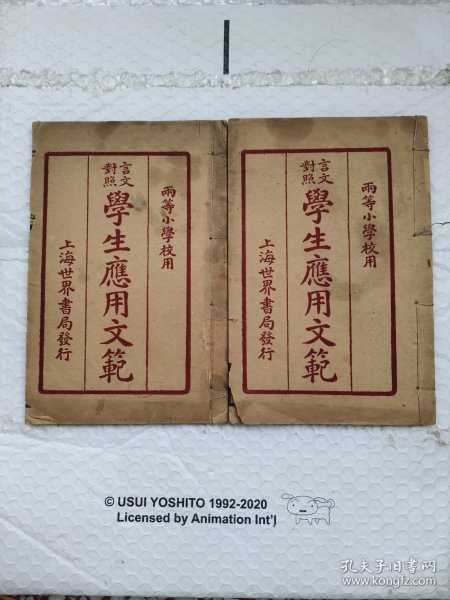 兩等小學校用
言文對照
學生應用文範
上海世界書局發行
兩等小學校用
言文對照
學生應用文範
上海世界書局發行
© USUI YOSHITO 1992-2020
Licensed by Animation Int'l
孔夫子旧书网
www.kongfz.com